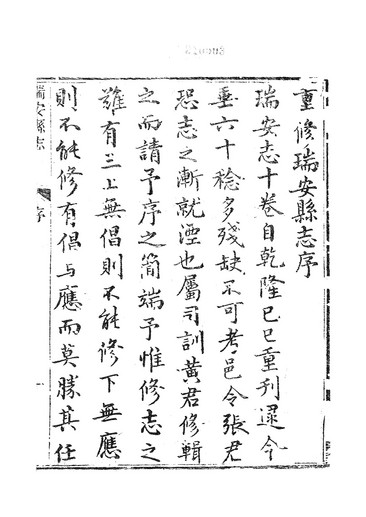 重修瑞安縣志序
瑞安志十卷自乾隆己巳重刊逮今
垂六十稔多殘缺不可考邑令張君
恐志之漸就湮也屬司訓黃君修輯
之而請予序之簡端予惟修志之
難有三上無倡則不能修下無應
則不能修有倡与應而莫勝其任
瑞安縣志
序
一